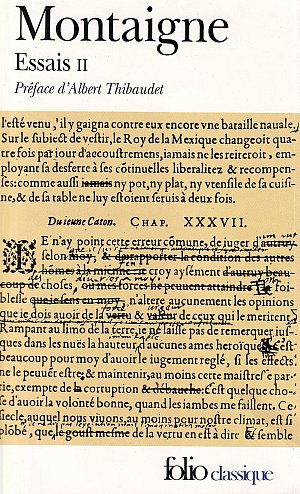 Montaigne
Essais II
Préface d'Albert Thibaudet
l'esté venu, il y gaigna contre eux encore vne bataille nauale.
Sur le subiect de vestir, le Roy de la Mexique changeoit quatre
fois par iour d'accoustremens, iamais ne les reiteroit, em-
ployant sa desferre à ses cõtinuelles liberalitez & recompen-
ses: comme aussi iamais ny pot, ny plat, ny vtensile de sa cuisi-
ne, & de sa table ne luy estoient seruis à deux fois.
Du ieune Caton. CHAP. XXXVII.
IE n'ay point cette erreur cõmune, de iuger d'autruy
selon moy, & de rapporter la condition des autres
hómes à la mienne ie croy aysément d'autruy beau-
coup de choses, où mes forces ne peuuent attaindre
blesse que ie sens en moy, n'altere aucunement les opinions
que ie dois auoir de la vertu & valeur de ceux qui le meritent.
Rampant au limõ de la terre, ie ne laisse pas de remerquer ius-
ques dans les nuës la hauteur d'aucunes ames heroïques: c'est
beaucoup pour moy d'auoir le iugement reglé, si les effects
ne le peuuẽt estre, & maintenir au moins cette maistresse par-
tie, exempte de la corruption & débauche: c'est quelque cho-
se d'auoir la volonté bonne, quand les iambes me faillent. Ce
siecle, auquel nous viuons, au moins pour nostre climat, est si
plõbé, que le goust mesme de la vertu en est à dire & semble
folio classique